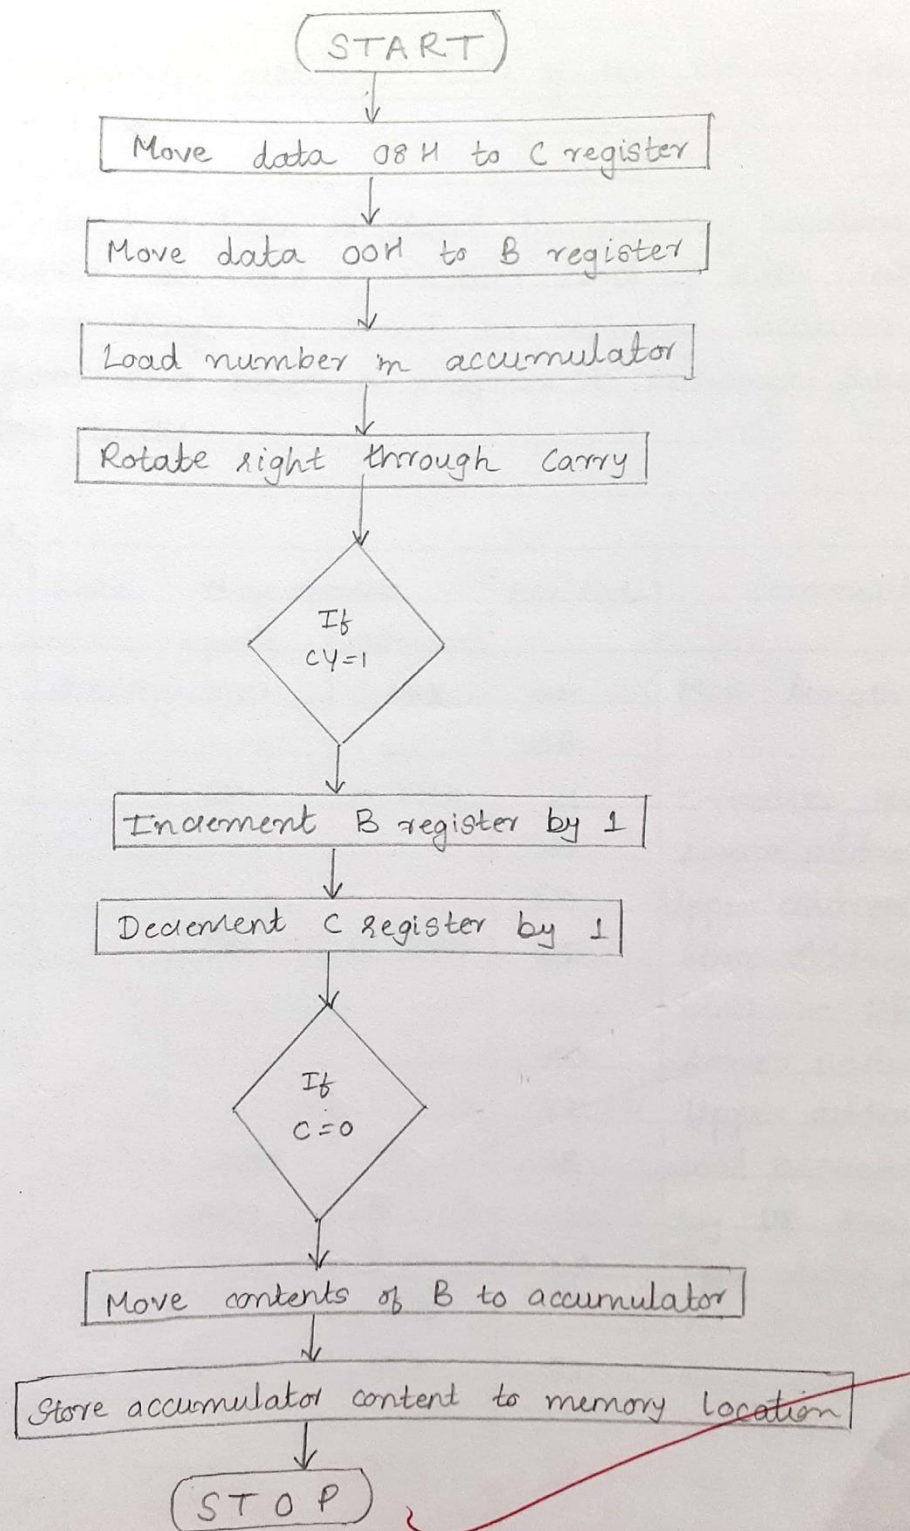 START
Move data 08H to C register
Move data 00H to B register
Load number in accumulator
Rotate right through carry
If
CY=1
Increment B register by 1
Decrement C register by 1
If
C=0
Move contents of B to accumulator
Store accumulator content to memory location
STOP